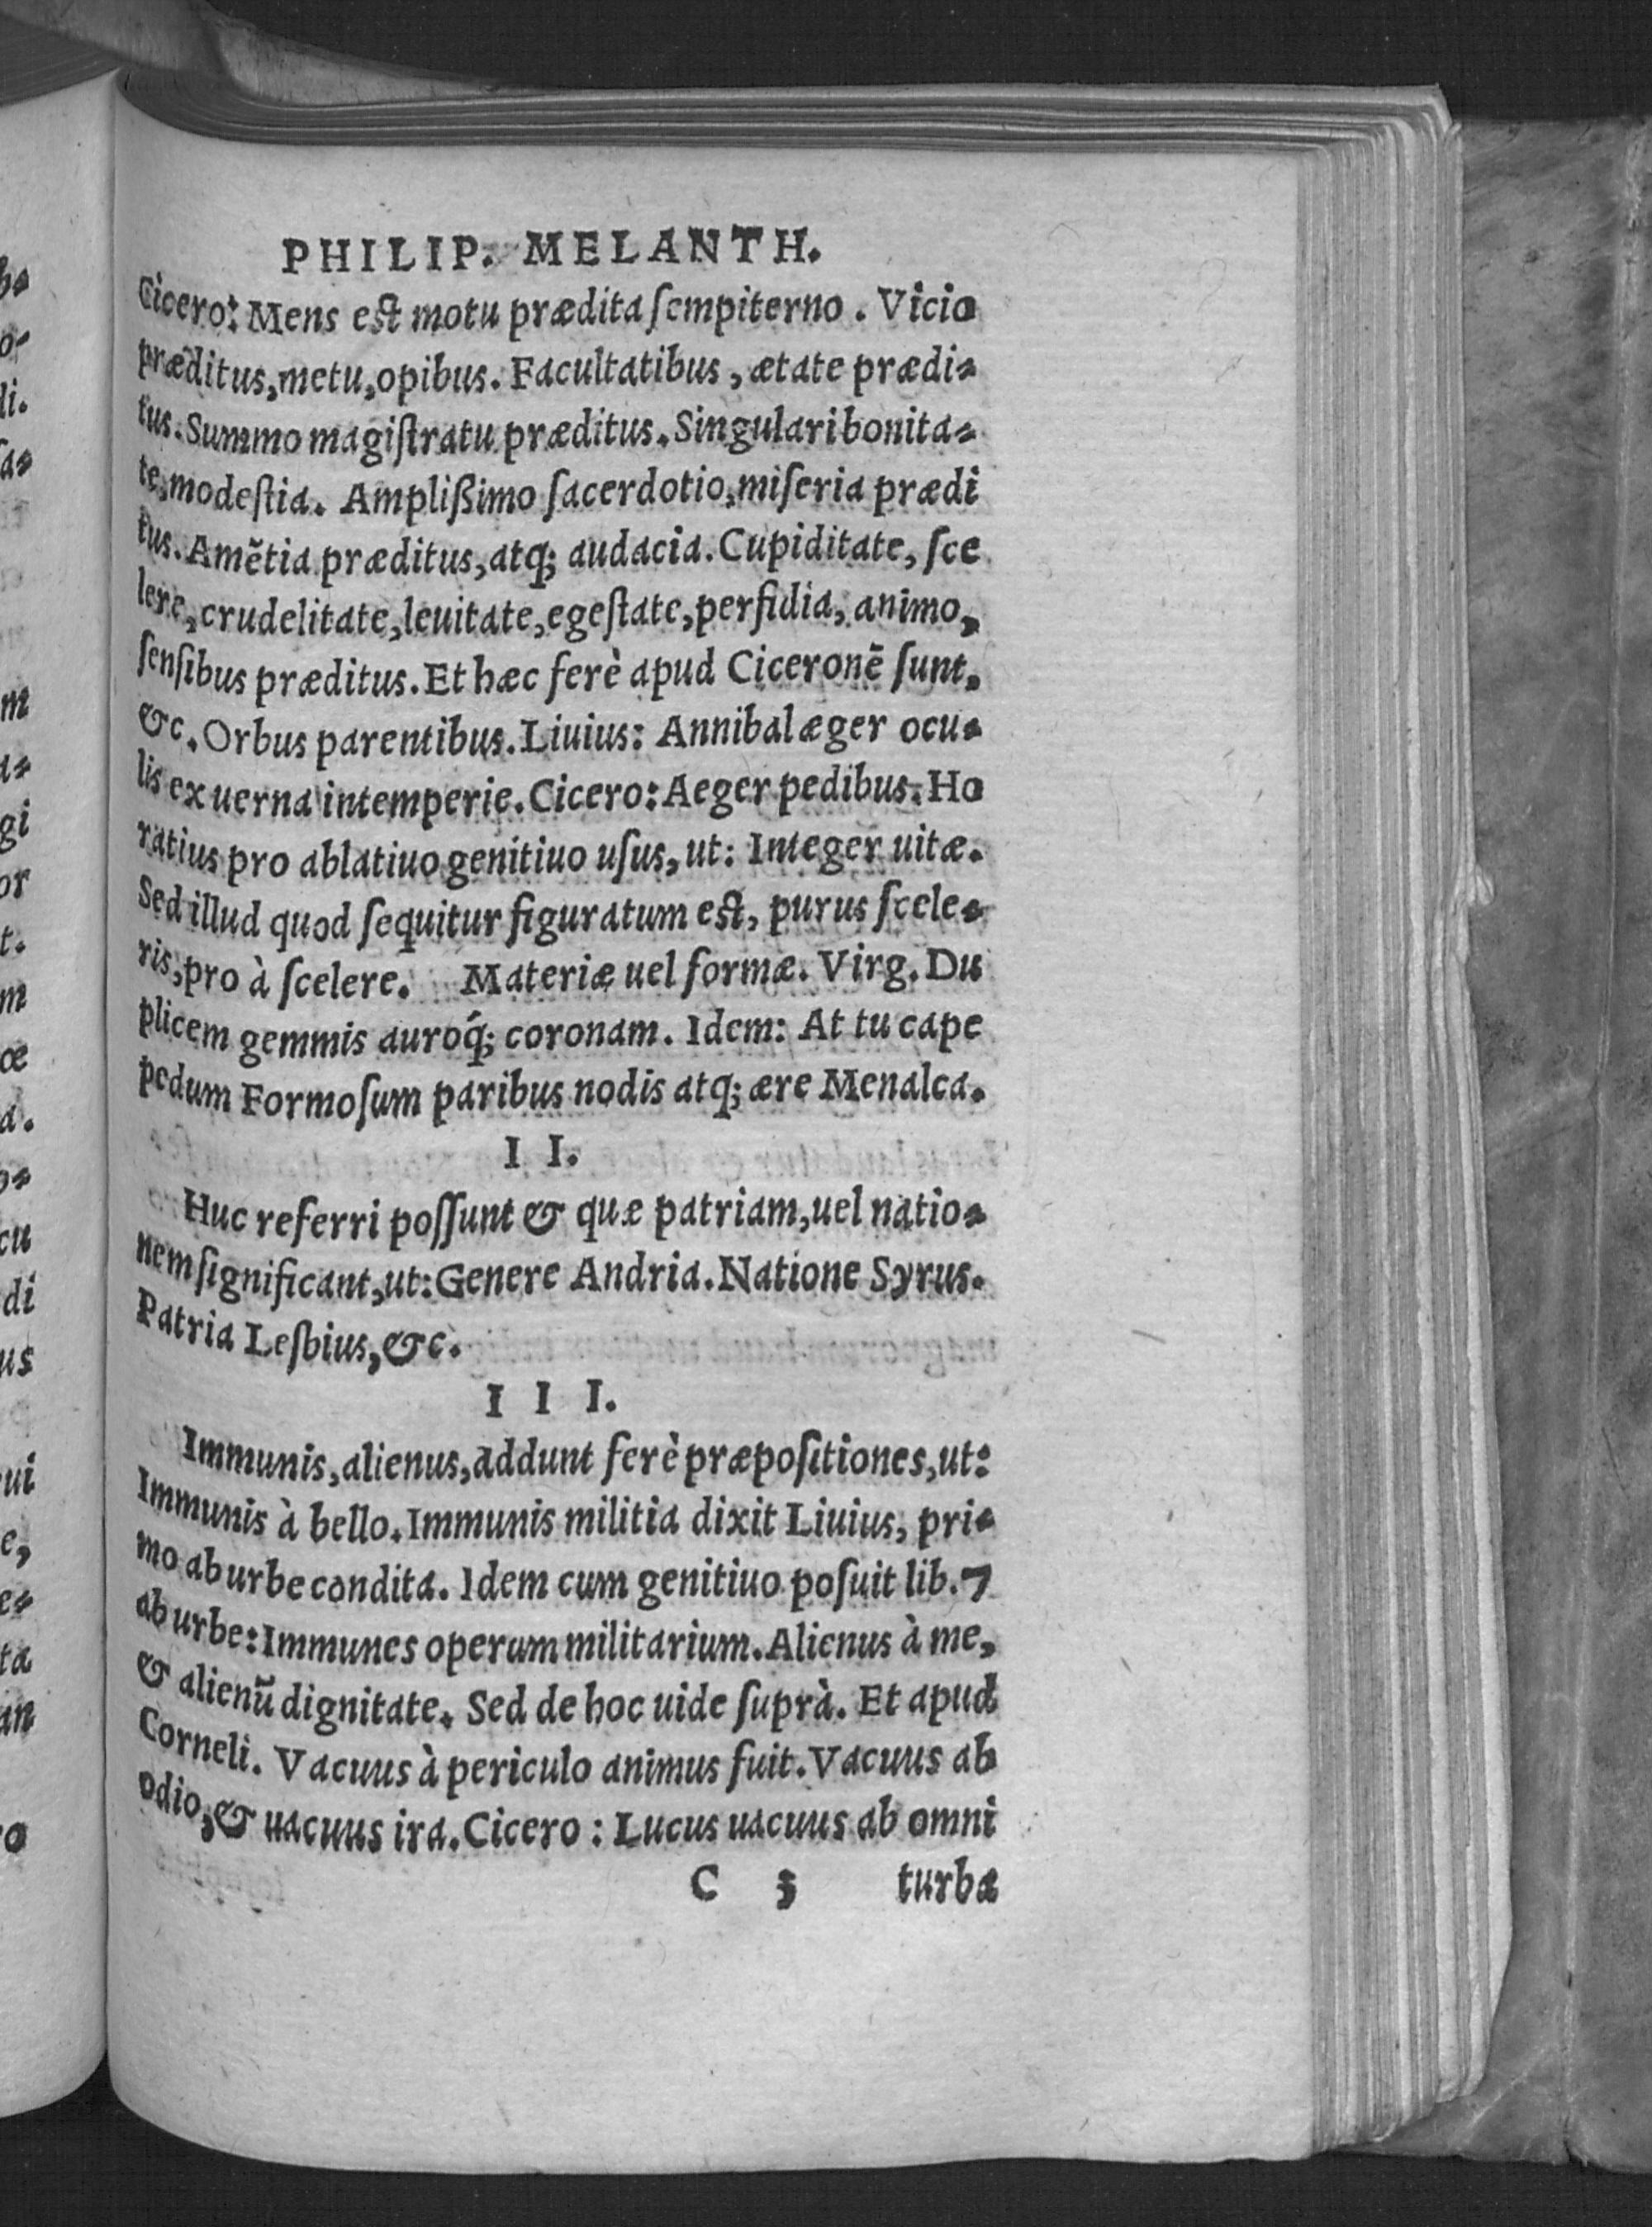 PHILIP. MELANTH.
Cicero: Mens est motu prædita ſempiterno. Vicio
præditus, metu, opibus. Facultatibus, ætate prædi-
tus. Summo magiſtratu præditus. Singulari bonita-
te, modeſtia. Ampliſsimo ſacerdotio, miſeria prædi
tus. Amẽtia præditus, atq; audacia. Cupiditate, ſce
lere, crudelitate, leuitate, egeſtate, perfidia, animo,
ſenſibus præditus. Et hæc ferè apud Ciceronẽ ſunt,
&c. Orbus parentibus. Liuius: Annibal æger ocu-
lis ex uerna intemperie. Cicero: Aeger pedibus. Ho
ratius pro ablatiuo genitiuo uſus, ut: Integer uitæ.
Sed illud quod ſequitur figuratum est, purus ſcele-
ris, pro à ſcelere. Materiæ uel formæ. Virg. Du
plicem gemmis auroq́; coronam. Idem: At tu cape
pedum Formoſum paribus nodis atq; ære Menalca.
I I.
Huc referri poſſunt & quæ patriam, uel natio-
nem ſignificant, ut: Genere Andria. Natione Syrus.
Patria Leſbius, &c.
I I I.
Immunis, alienus, addunt ferè præpoſitiones, ut:
Immunis à bello. Immunis militia dixit Liuius, pri-
mo ab urbe condita. Idem cum genitiuo poſuit lib. 7
ab urbe: Immunes operum militarium. Alienus à me,
& alienũ dignitate. Sed de hoc uide ſuprà. Et apud
Corneli. Vacuus à periculo animus fuit. Vacuus ab
odio, & uacuus ira. Cicero: Lucus uacuus ab omni
C 3 turba